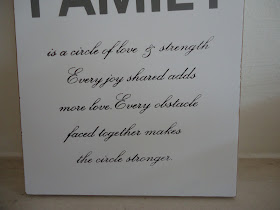 FAMILY
is a circle of love & strength
Every joy shared adds
more love.Every obstacle
faced together makes
the circle stronger.